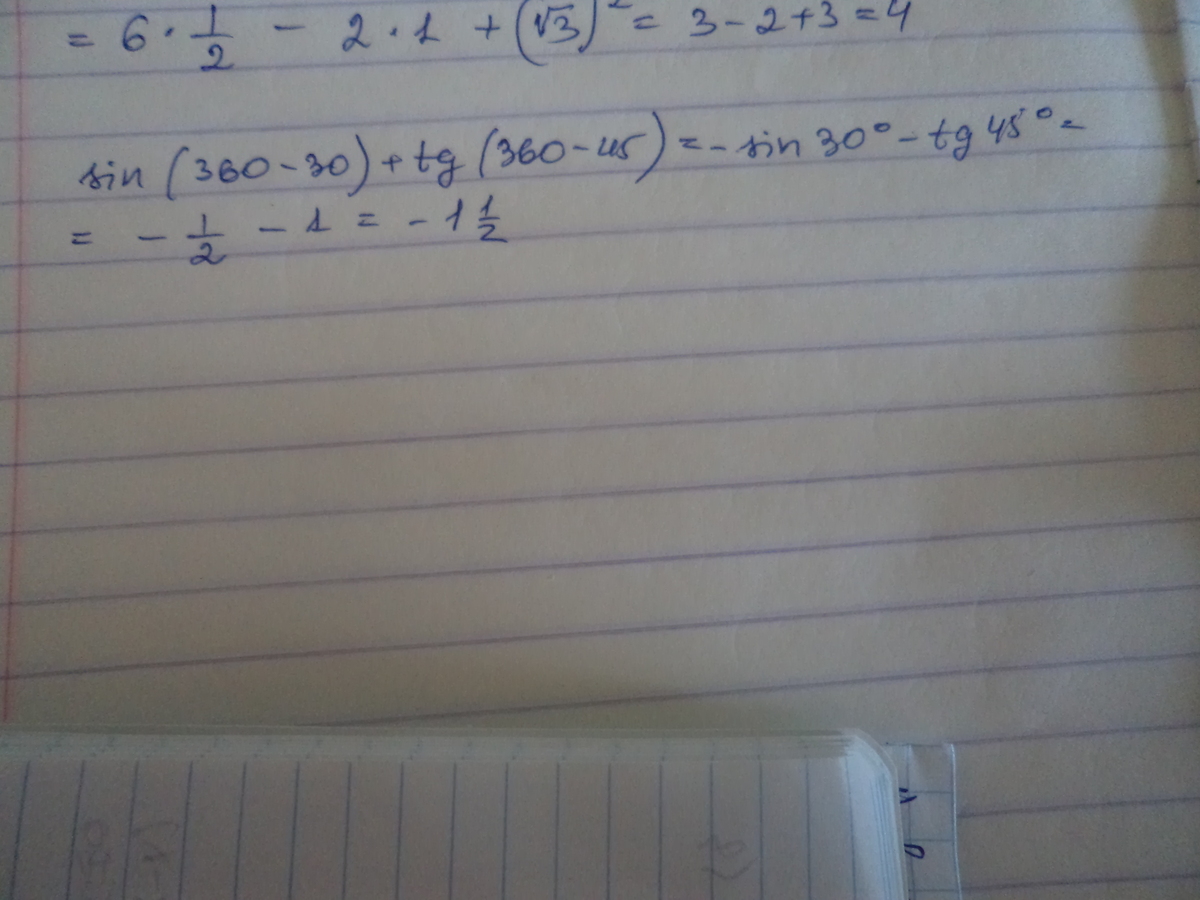 = 6 · 1/2 - 2 · 1 + (√3)² = 3 - 2 + 3 = 4
sin (360 - 30) + tg (360 - 45) = - sin 30° - tg 45° =
= - 1/2 - 1 = - 1 1/2